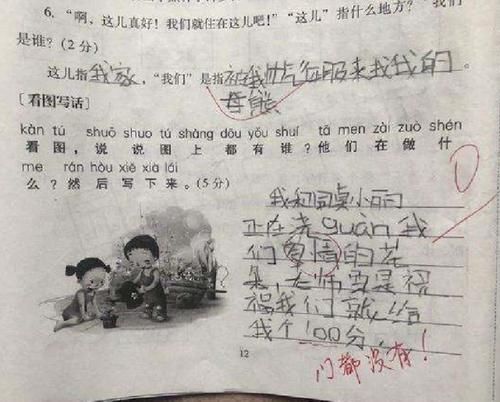 6. “啊，这儿真好！我们就住在这儿吧！”“这儿”指什么地方？“我们”
是谁？(2分)
这儿指我家，“我们”是指被我帅气征服来找我的。
母熊
[看图写话]
kàn tú shuō shuo tú shàng dōu yǒu shuí tā men zài zuò shén
看图，说说图上都有谁？他们在做什
me rán hòu xiě xià lái
么？然后写下来。(5分)
我和同桌小丽
正在浇guàn我
们爱情的花
朵，老师要是祝
福我们就给
我个100分，
门都没有！
12